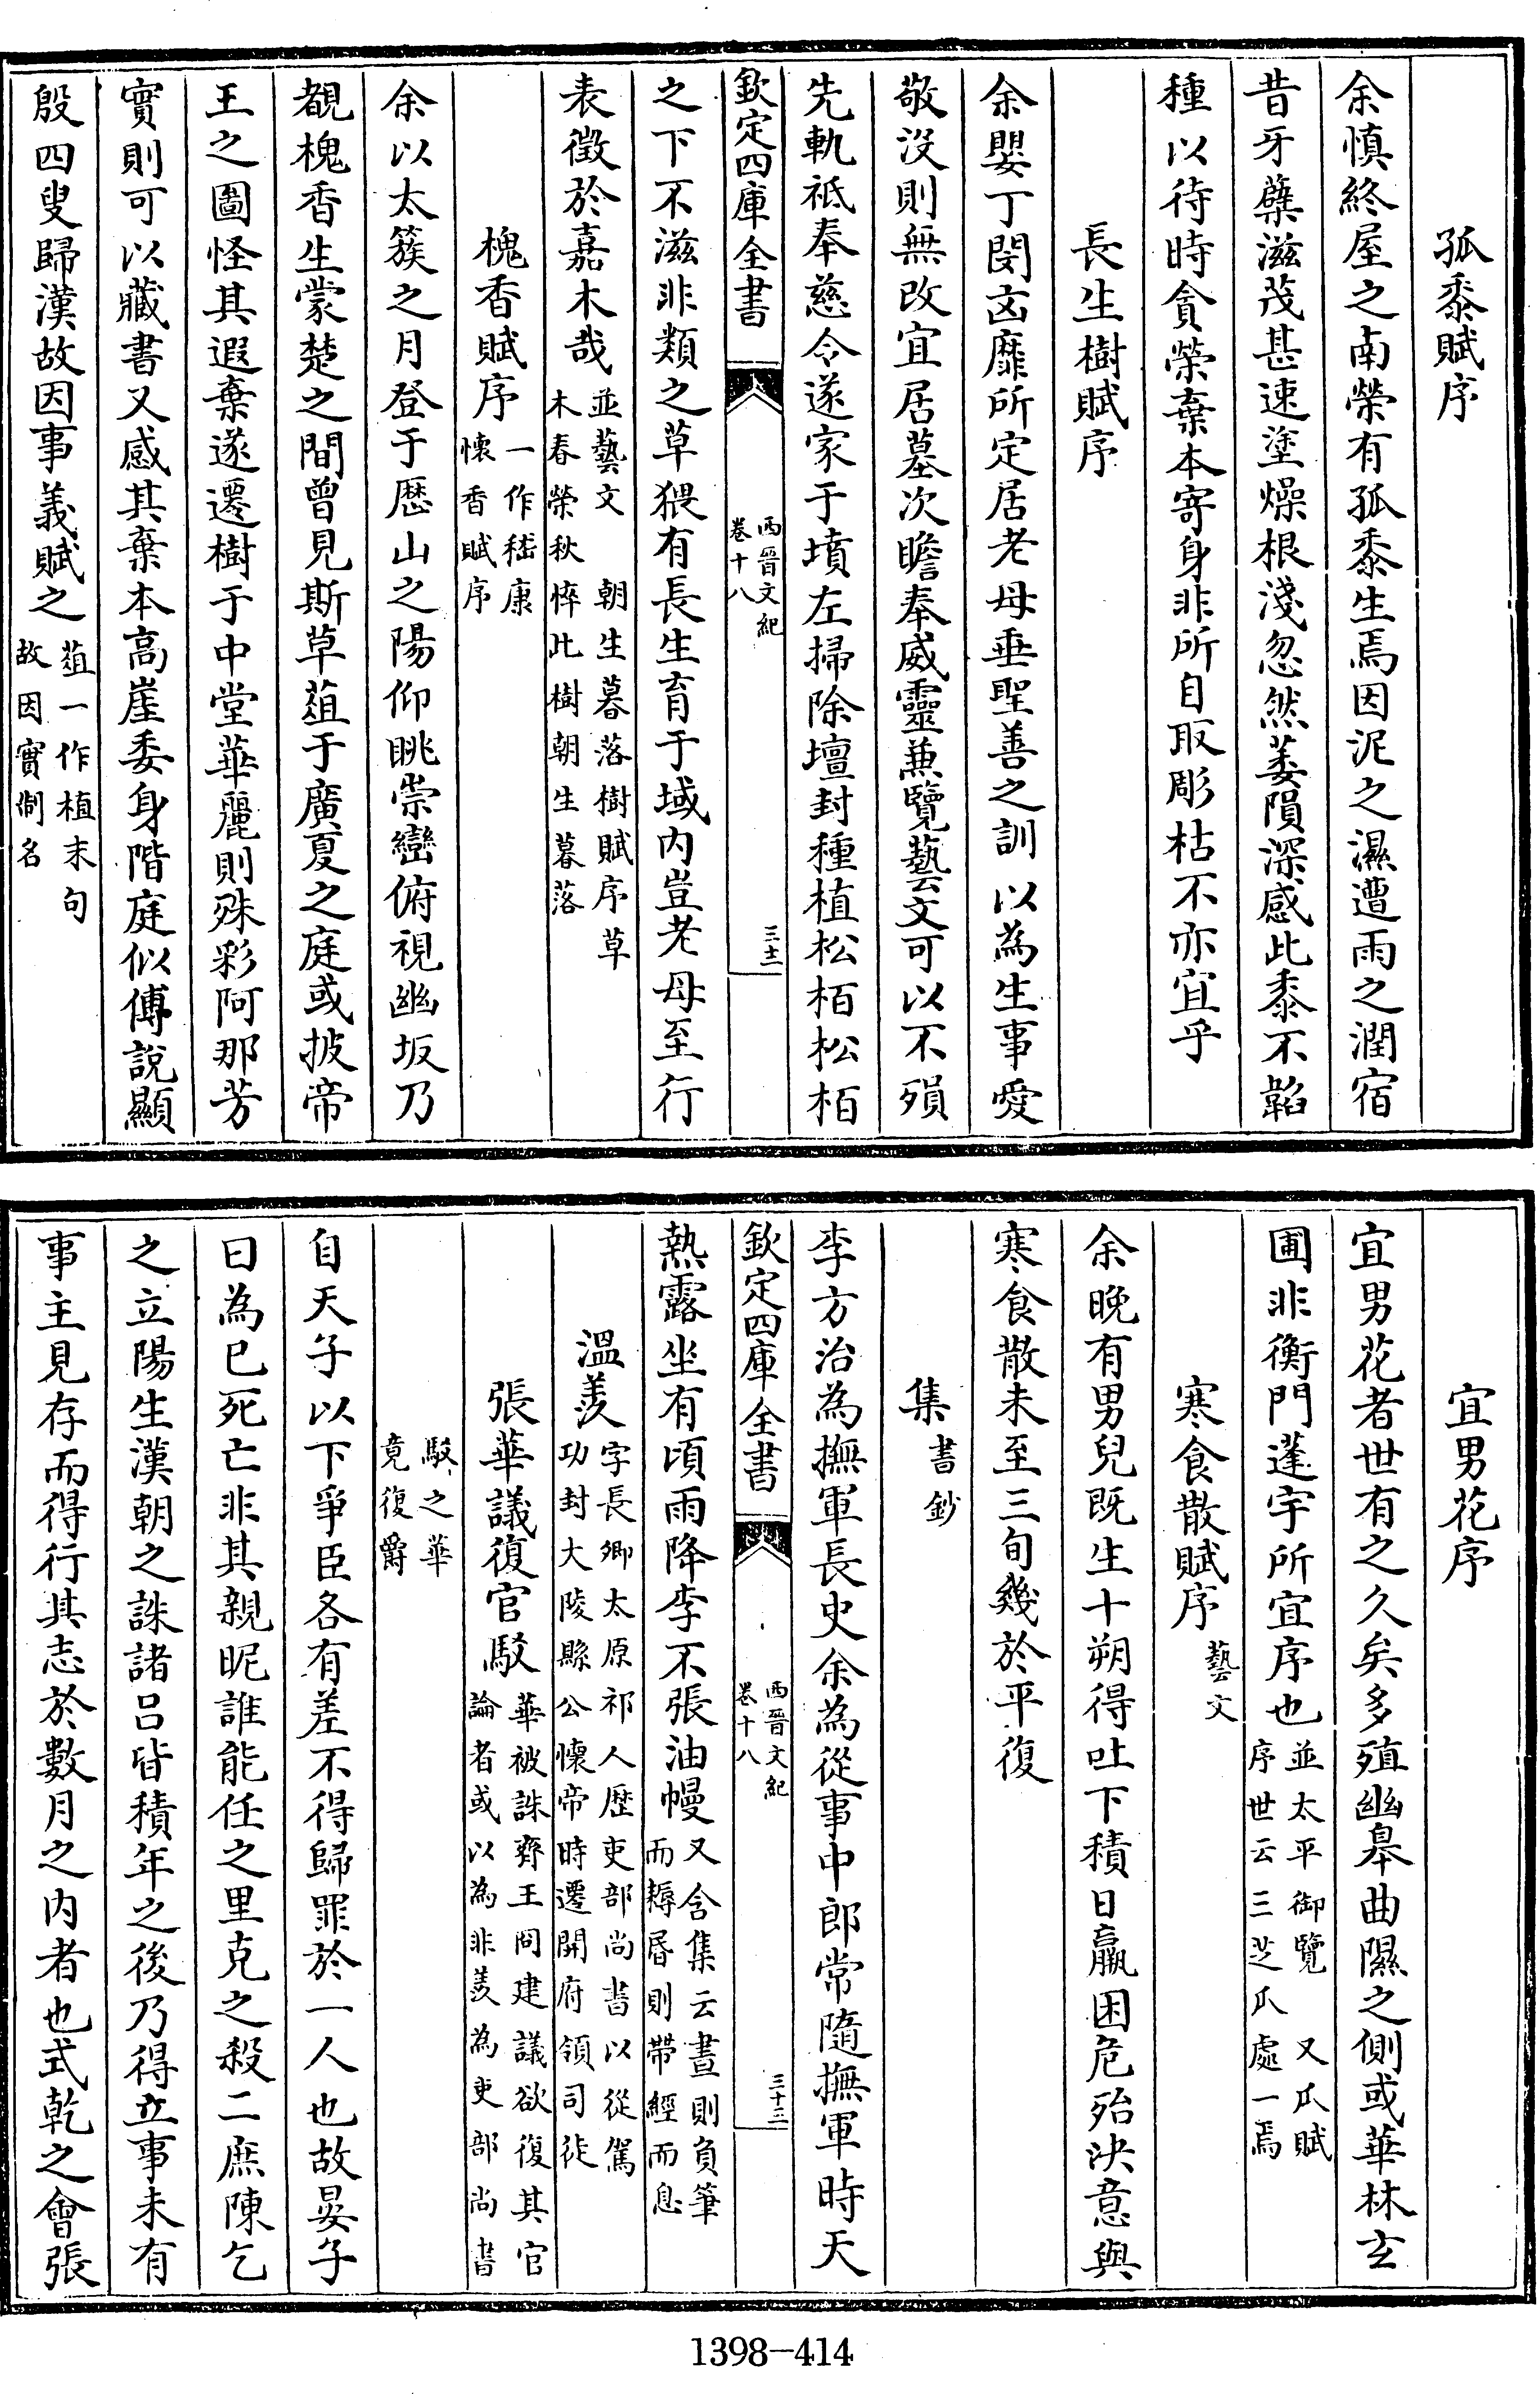 孤黍賦序
余慎終屋之南榮有孤黍生焉因泥之濕遭雨之潤宿
昔牙蘖滋茂甚速塗燥根淺忽然萎隕深感此黍不韜
種以待時貪榮棄本寄身非所自取彫枯不亦宜乎
長生樹賦序
余嬰丁閔凶靡所定居老母垂聖善之訓以為生事愛
敬没則無改宜居墓次瞻奉威靈兼覽藝文可以不殞
先軌祗奉慈令遂家于墳左掃除壇封種植松栢松栢
欽定四庫全書
西晉文紀
卷十八
三十二
之下不滋非類之草猥有長生育于域内豈老母至行
表徵於嘉木哉並藝文 朝生暮落樹賦序草
木春榮秋悴此樹朝生暮落
槐香賦序一作嵇康
懷香賦序
余以太簇之月登于歴山之陽仰眺崇巒俯視幽坂乃
覩槐香生蒙楚之間曾見斯草葅于廣夏之庭或披帝
王之圖怪其遐棄遂遷樹于中堂華麗則殊彩阿那芳
實則可以藏書又感其棄本高崖委身階庭似傅說顯
殷四叟歸漢故因事義賦之葅一作植末句
故因實制名
宜男花序
宜男花者世有之久矣多殖幽臯曲隰之側或華林玄
圃非衡門蓬宇所宜序也並太平御覽 又瓜賦
序世云三芝瓜處一焉
寒食散賦序藝文
余晚有男兒既生十朔得吐下積日羸困危殆決意與
寒食散未至三旬幾於平復
集書鈔
李方治為撫軍長史余為從事中郎常隨撫軍時天
欽定四庫全書
西晉文紀
卷十八
三十三
熱露坐有頃雨降李不張油幔又含集云晝則負筆
而耨昬則帶經而息
溫羡字長卿太原祁人歴吏部尚書以從駕
功封大陵縣公懷帝時遷開府領司徒
張華議復官駁華被誅齊王冏建議欲復其官
論者或以為非羡為吏部尚書
駁之華
竟復爵
自天子以下爭臣各有差不得歸罪於一人也故晏子
曰為已死亡非其親昵誰能任之里克之殺二庶陳乞
之立陽生漢朝之誅諸呂皆積年之後乃得立事未有
事主見存而得行其志於數月之内者也式乾之會張
1398-414